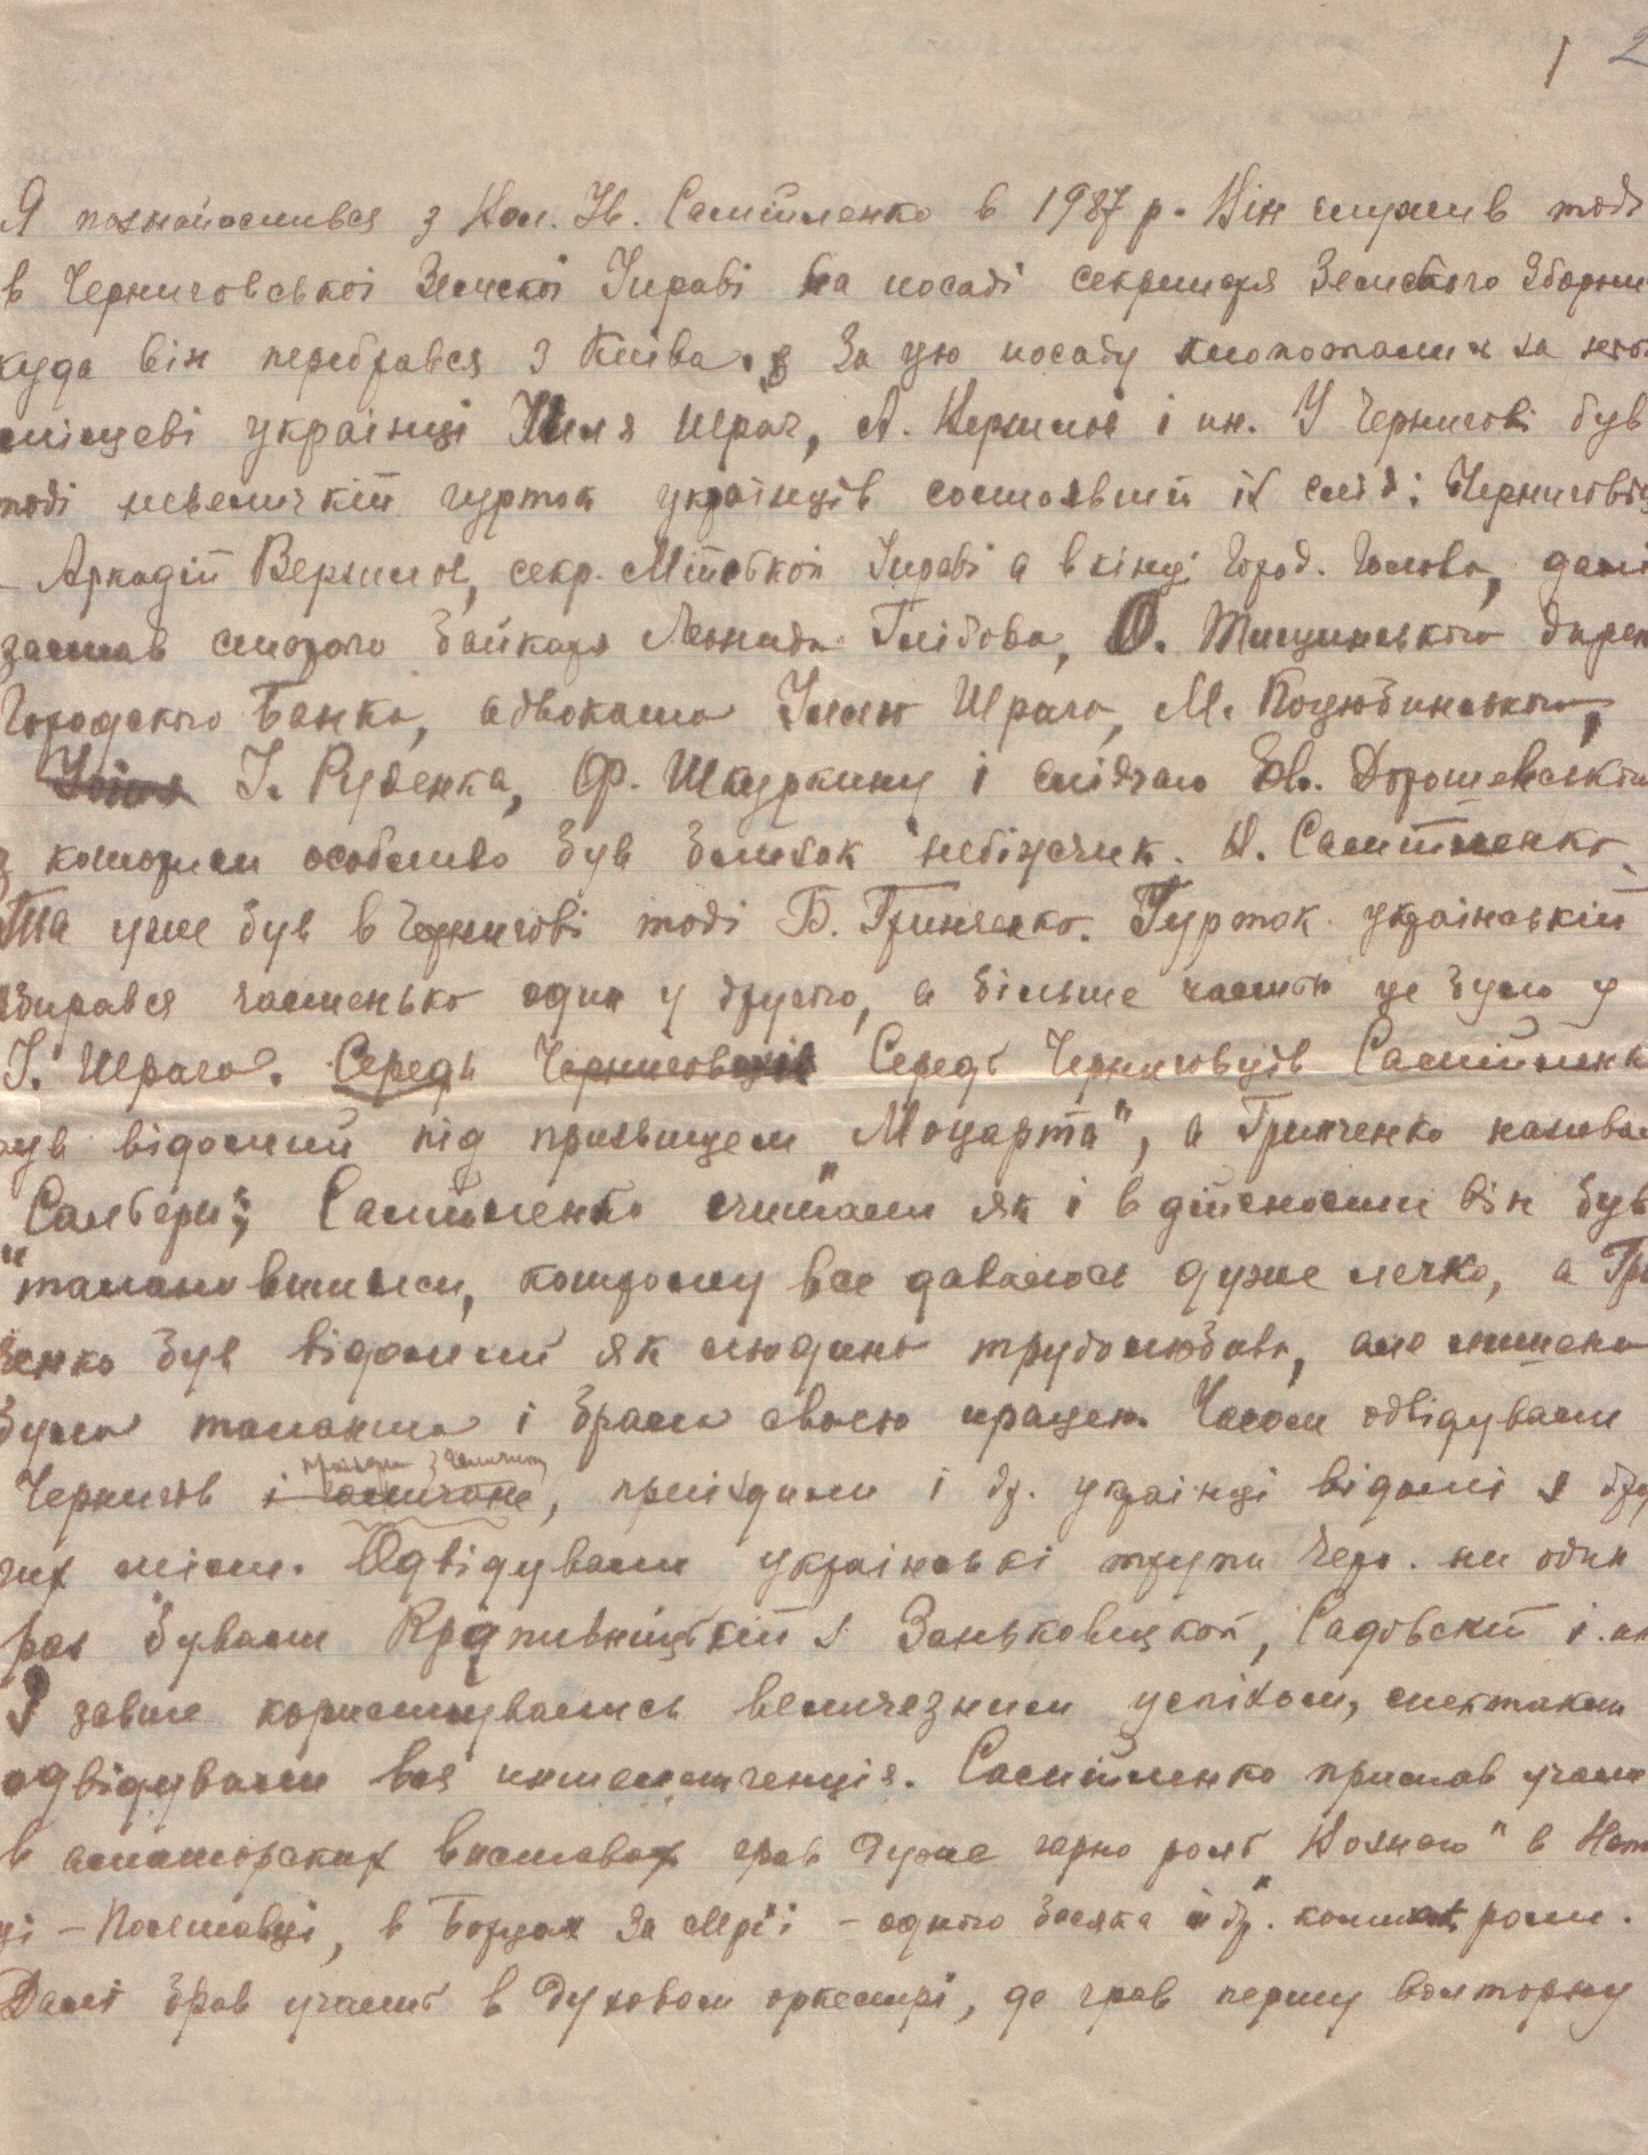 1 2
Я познайомився з Вол. Ів. Самійленко в 1987 р. Він служив тоді
в Черниговської Земскої Управі на посаді секретаря Земського Зборни
куда він перебрався з Київа. За цю посаду клопотались за його
місцеві українці Ілля Шраг, А. Верзилов і ин. У Чернигові був
тоді невеличкій гурток українців состоявший із слід: Черниговців
- Аркадій Верзилов, секр. Мійської Управі а вкінці Город. Голова, далі
застав старого байкаря Леонида Глібова, О. Тищинського дирек
Городського Банка, адвоката Іллю Шрага, М. Коцюбинського,
І. Руденка, Ф. Шкуркину і слідчаго Ев. Дорошевського
з которим особливо був близок небіжчик. В. Самійленко.
Та уже був в Чернигові тоді Б. Гринченко. Гурток українській
збирався частенько один у другого, а більше частію це було у
І. Шрага. Середь Черниговців Середь Черниговців Самійленк
був відомий під призвищем „Моцарта", а Гринченко называли
„Сальери"; Самійленко считали як і в дійсности він був
"талановитим, котрому все давалось дуже легко, а Гри
ченко був відомий як людина трудолюбива, але лишена
була таланта і брала своєю працею. Часом одвідували
приїзди з Галичини
Чернигов і галичане, приїздили і др. українці відомі з дру
гих міст. Одвідували українські трупи Черн. ни один
раз бували Кропивницький з Заньковицкой, Садовский і ин
І завше користувались величезним успіхом, спектакли
одвідували вся интелигенція. Самійленко приймав участь
в аматорских виставах грав дуже гарно роль „Возного" в Ната
ці - Полтавці, в Борцах За Мрії - одного босяка и др. комич. роли.
Далі брав участь в духовом оркестрі, де грав першу волторну